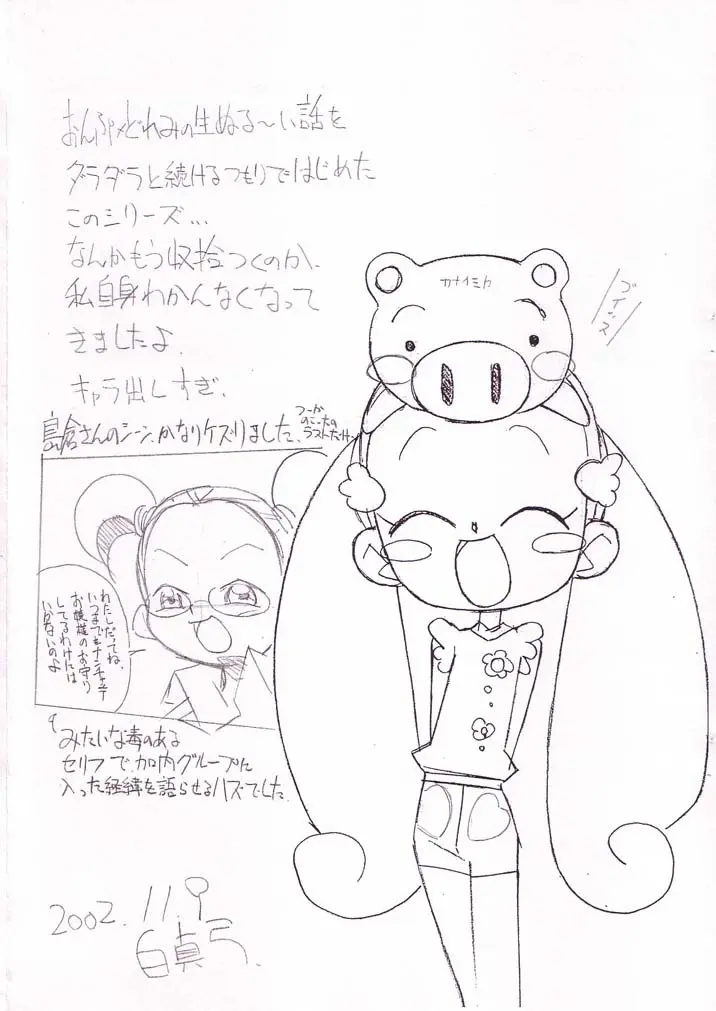 おんぷ×どれみの生ぬる〜い話を
ダラダラと続けるつもりではじめた
このシリーズ…
なんかもう収拾つくのか、
私自身わかんなくなって
きましたよ.
キャラ出しすぎ.
島倉さんのシーン、かなりケズりました.
つーか
のこったの
ラストだけ.
カナイミカ
わたしだってね、
いつまでもナンチャッテ
お嬢様のお守り
してるわけには
いかないのよ
みたいな毒のある
セリフで、加内グループに
入った経緯を語らせるハズでした.
2002. 11.9
白真弓.